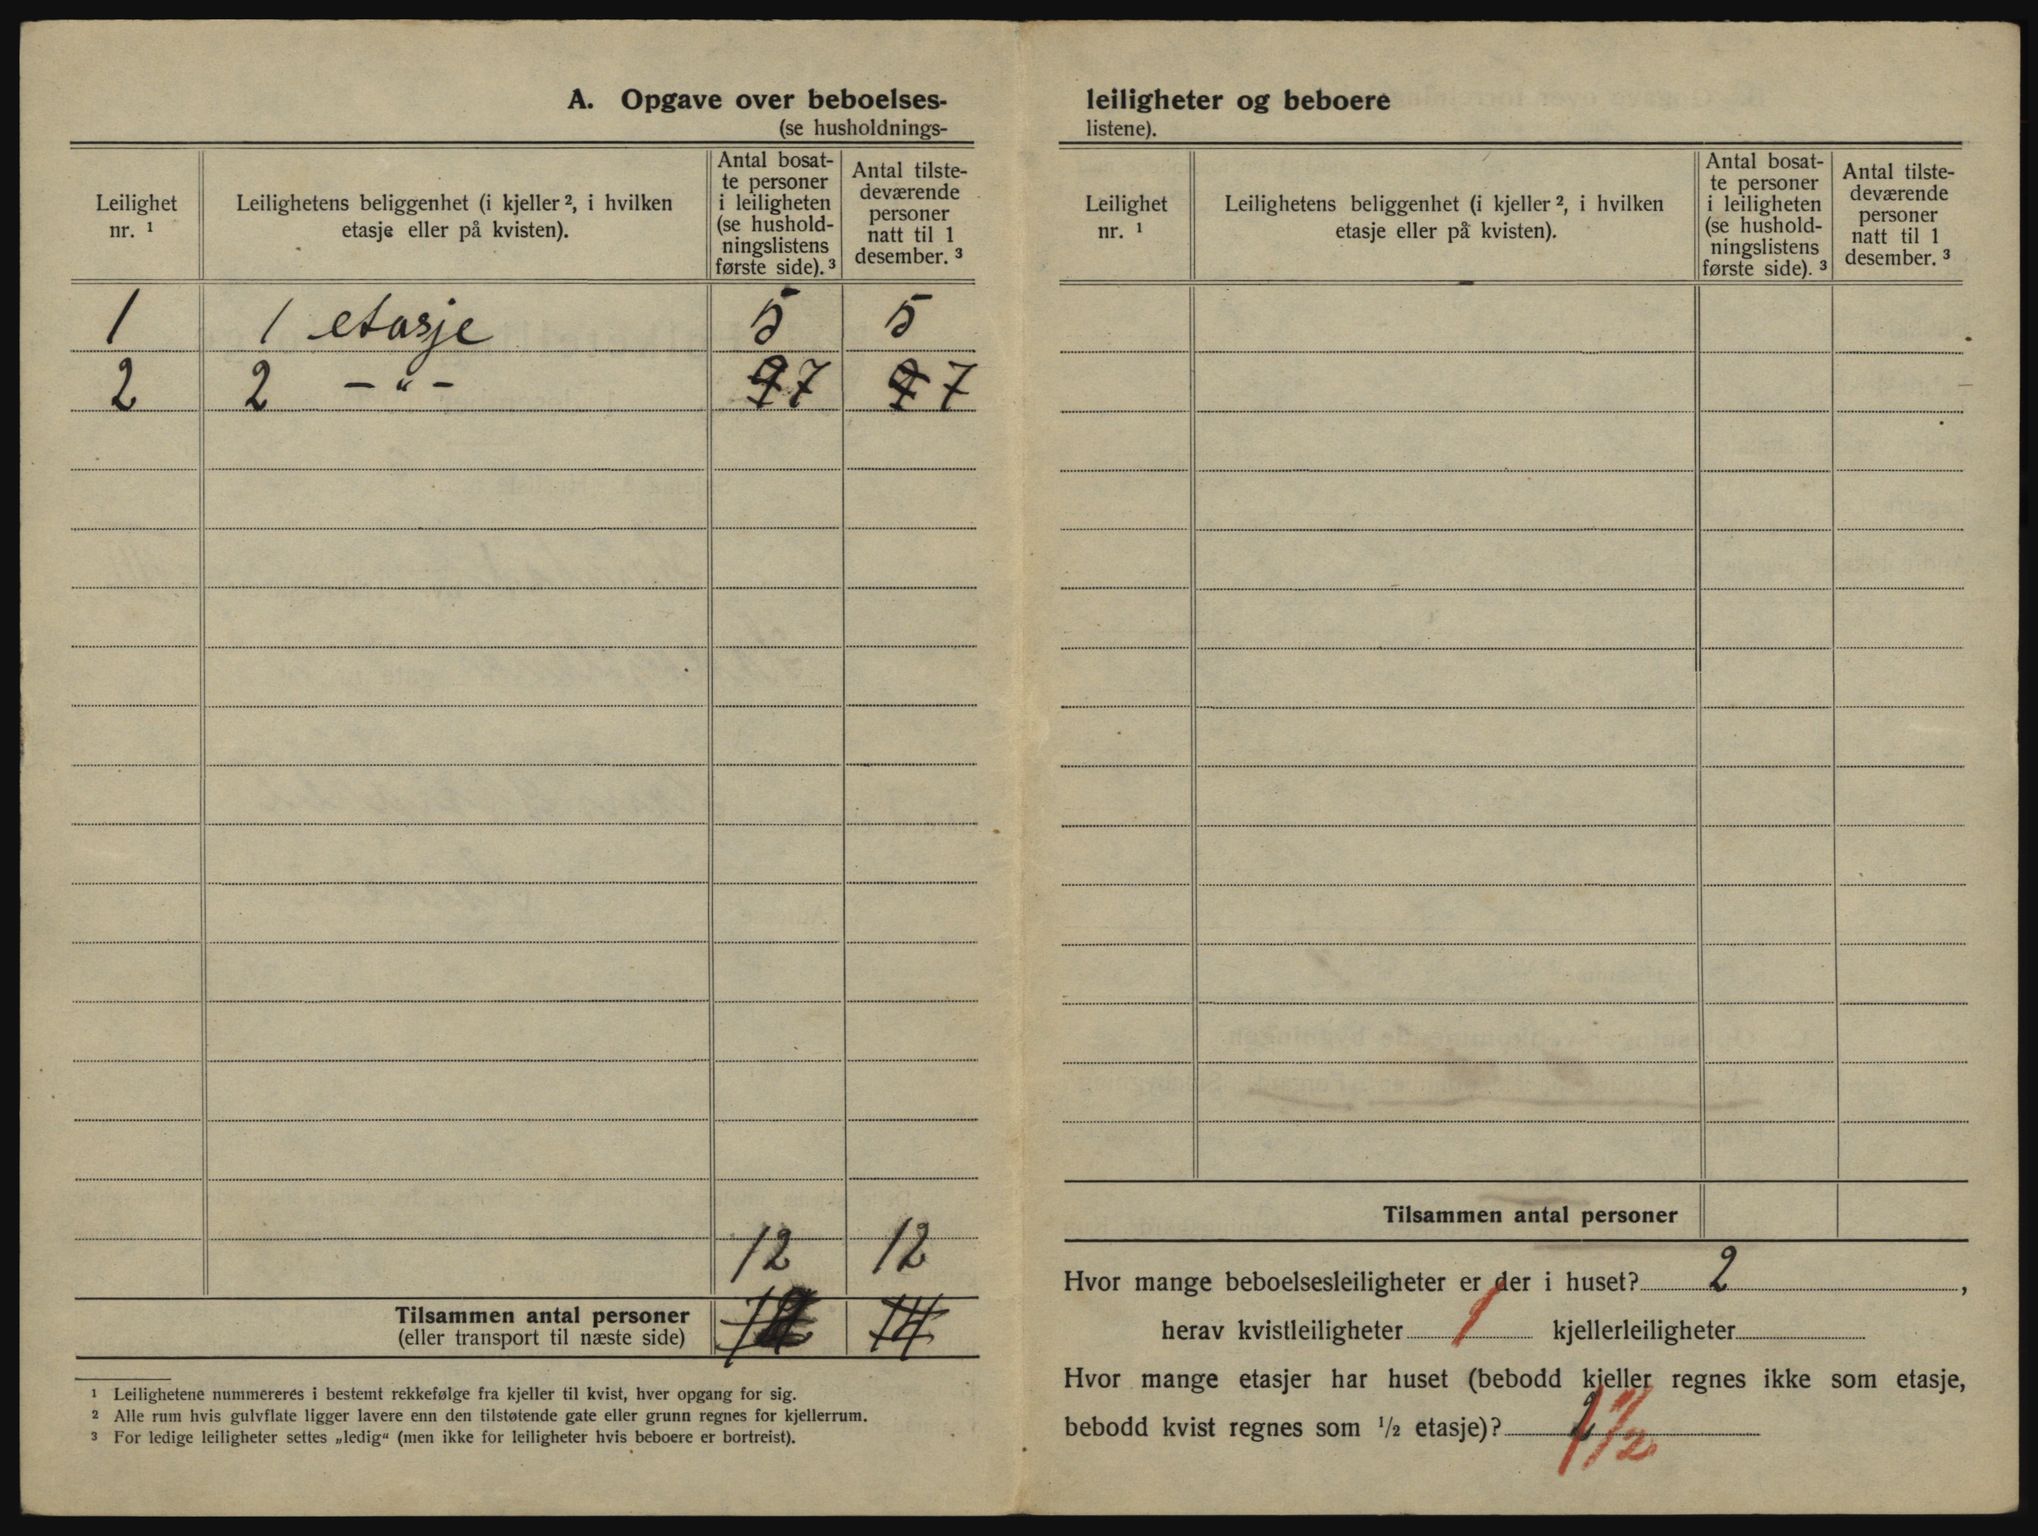 A. Opgave over beboelses-
(se husholdnings-
Leilighet nr. ¹
Leilighetens beliggenhet (i kjeller ², i hvilken
etasje eller på kvisten).
Antal bosat-
te personer
i leiligheten
(se hushold-
ningslistens
første side). ³
Antal tilste-
deværende
personer
natt til 1
desember. ³
1 1 etasje 5 5
2 2 — " — 7 7
12 12
Tilsammen antal personer
(eller transport til næste side) 14
¹ Leilighetene nummereres i bestemt rekkefølge fra kjeller til kvist, hver opgang for sig.
² Alle rum hvis gulvflate ligger lavere enn den tilstøtende gate eller grunn regnes for kjellerrum.
³ For ledige leiligheter settes „ledig“ (men ikke for leiligheter hvis beboere er bortreist).
leiligheter og beboere
listene).
Leilighet nr. ¹
Leilighetens beliggenhet (i kjeller ², i hvilken
etasje eller på kvisten).
Antal bosat-
te personer
i leiligheten
(se hushold-
ningslistens
første side). ³
Antal tilste-
deværende
personer
natt til 1
desember. ³
Tilsammen antal personer
Hvor mange beboelsesleiligheter er der i huset? 2 ,
herav kvistleiligheter 1 kjellerleiligheter
Hvor mange etasjer har huset (bebodd kjeller regnes ikke som etasje,
bebodd kvist regnes som ½ etasje)? 2 1 ½